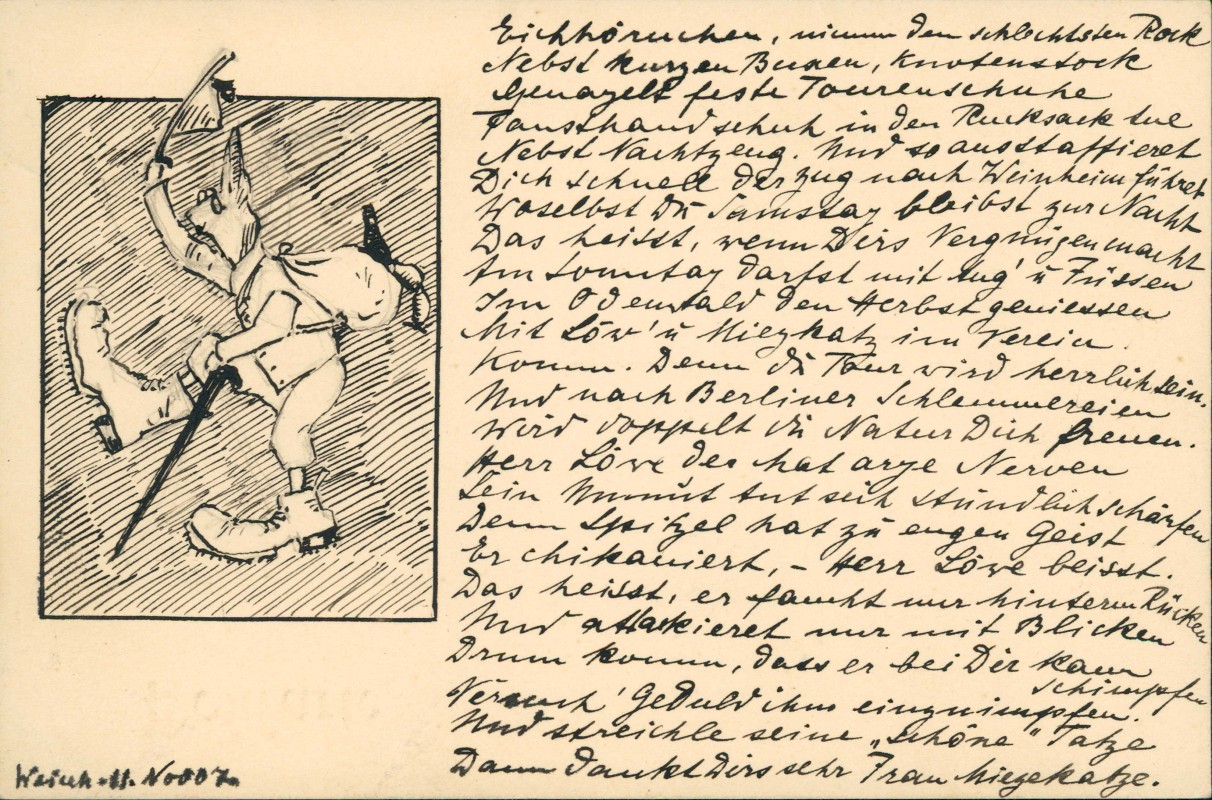 Eichhörnchen, nimm den schlechtsten Rock
Nebst kurzen Buxen, Knotenstock
Genagelt feste Tourenschuhe
Fausthandschuh in den Rucksack tue
Nebst Nachtzeug. Und so ausstaffieret
Dich schnell der Zug nach Weinheim führet
Woselbst Du Samstag bleibst zur Nacht
Das heisst, wenn Dirs Vergnügen macht
Am Sonntag darfst mit Aug' u Füssen
Im Odenwald den Herbst geniessen
Mit Löw' u Miezkatz im Verein.
Komm. Denn die Tour wird herrlich sein.
Und nach Berliner Schlemmereien
Wird doppelt die Natur Dich freuen.
Herr Löwe der hat arge Nerven
Sein Unmut tut sich stündlich schärfen
Denn Spitzel hat zu engen Geist
Er chikaniert, – Herr Löwe beisst.
Das heisst, er faucht nur hinterm Rücken
Und attackieret nur mit Blicken
Drum komm, dass er bei Dir kann
schimpfen
Versuch' Geduld ihm einzuimpfen.
Und streichle seine „schöne" Tatze
Dann dankt Dirs sehr Frau Miezekatze.